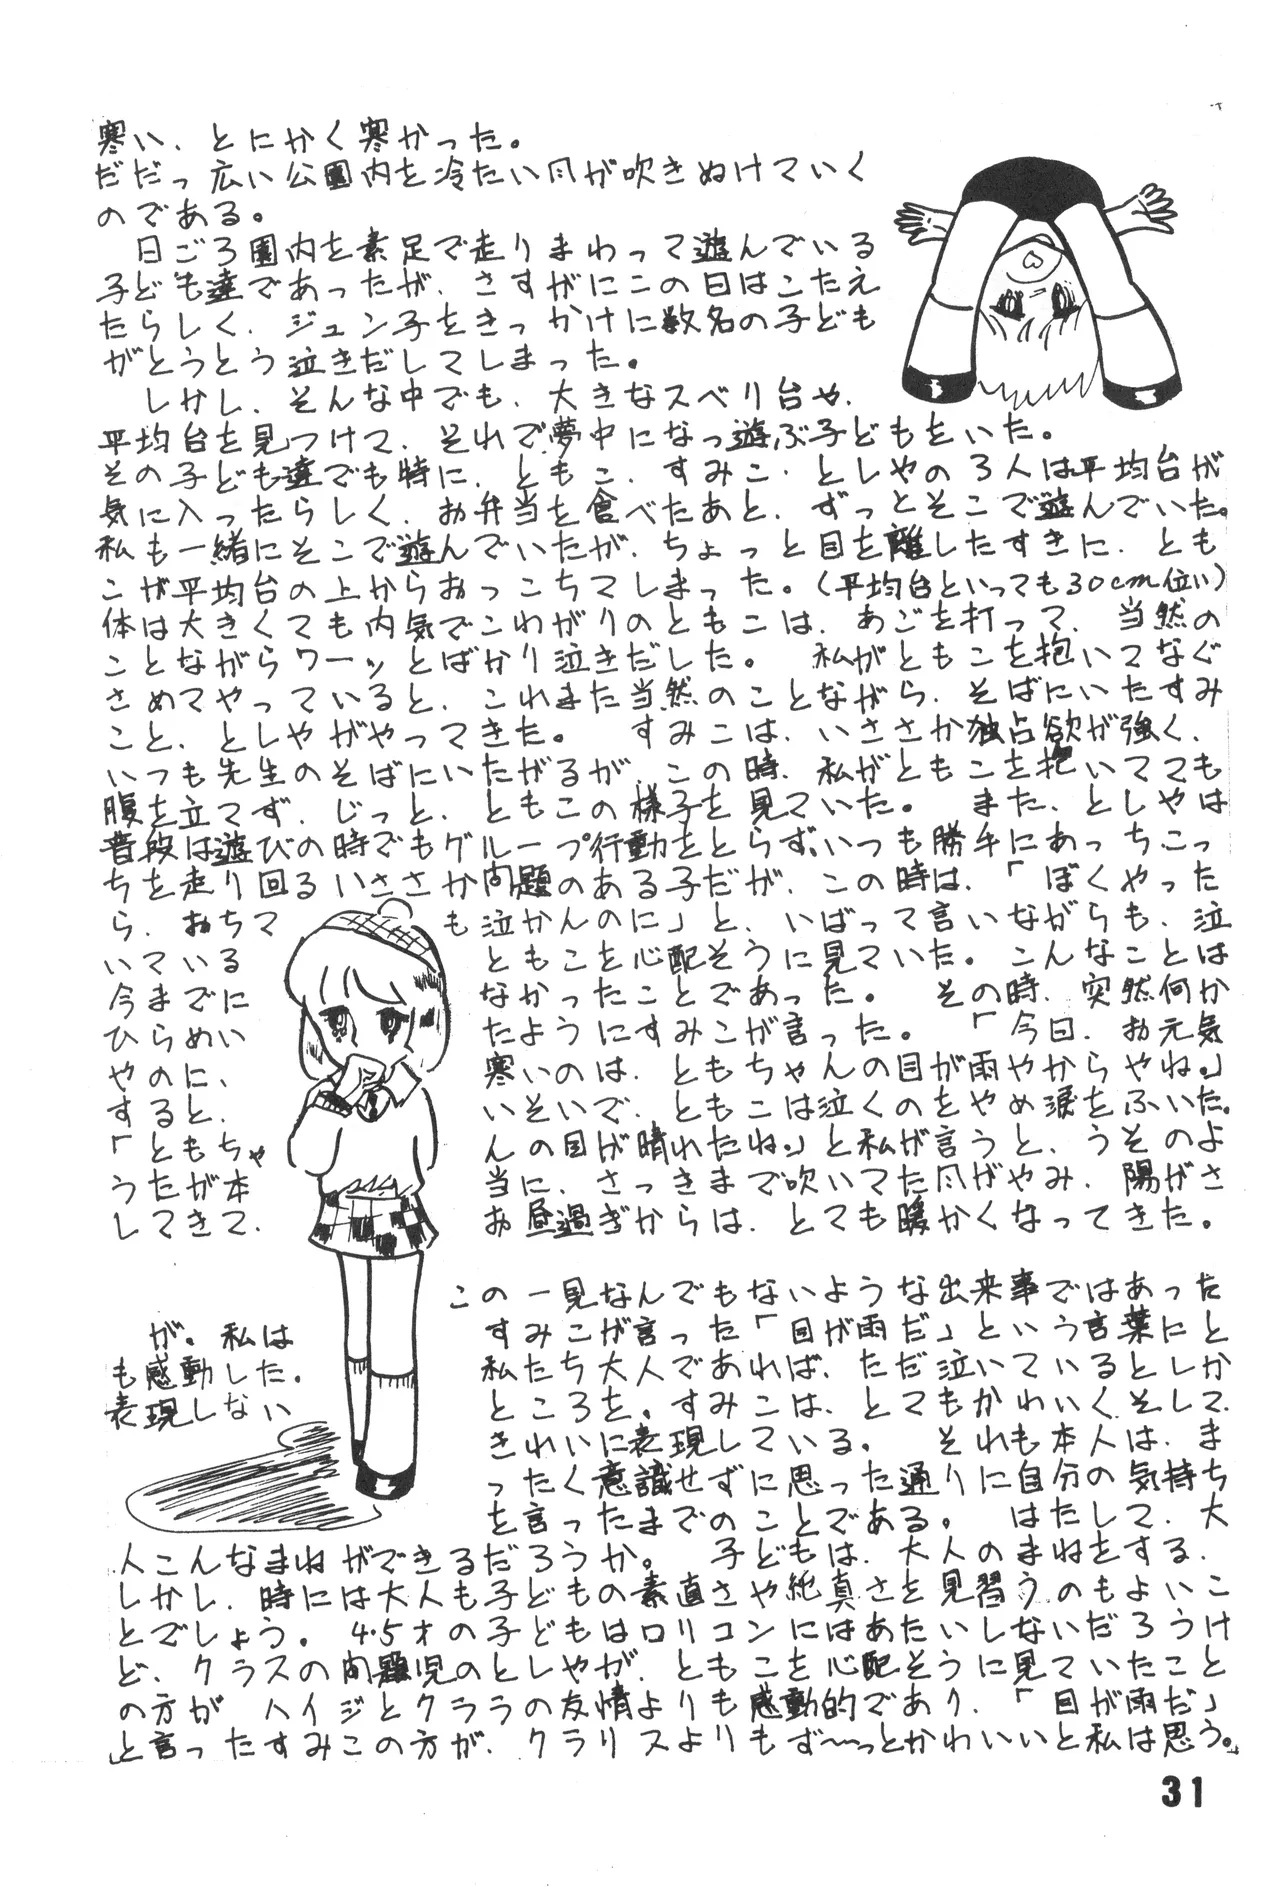 寒い、とにかく寒かった。
だだっ広い公園内を冷たい風が吹きぬけていく
のである。
日ごろ園内を素足で走りまわって遊んでいる
子ども達であったが、さすがにこの日はこたえ
たらしく、ジュン子をきっかけに数名の子ども
がとうとう泣きだしてしまった。
しかし、そんな中でも、大きなスベリ台や、
平均台を見つけて、それで夢中になっ遊ぶ子どもをいた。
その子ども達でも特に、ともこ、すみこ、としやの3人は平均台が
気に入ったらしく、お弁当を食べたあと、ずっとそこで遊んでいた。
私も一緒にそこで遊んでいたが、ちょっと目を離したすきに、とも
こが平均台の上からおっこちてしまった。(平均台といっても30cm位い)
体は大きくても内気でこわがりのともこは、あごを打って、当然の
ことながらワーッとばかり泣きだした。 私がともこを抱いてなぐ
さめてやっていると、これまた当然のことながら、そばにいたすみ
こと、としやがやってきた。 すみこは、いささか独占欲が強く、
いつも先生のそばにいたがるが、この時、私がともこを抱いてても
腹を立てず、じっと、ともこの様子を見ていた。 また、としやは
普段は遊びの時でもグループ行動をとらず、いつも勝手にあっちこっ
ちを走り回るいささか問題のある子だが、この時は、「ぼくやった
ら、おちて も泣かんのに」と、いばって言いながらも、泣
いている ともこを心配そうに見ていた。こんなことは
今までに なかったことであった。 その時、突然何か
ひらめい たようにすみこが言った。 「今日、お元気
やのに、 寒いのは、ともちゃんの目が雨やからやね。」
すると、 いそいで、ともこは泣くのをやめ涙をふいた。
「ともちゃ んの目が晴れたね。」と私が言うと、うそのよ
うたが本 当に、さっきまで吹いてた風がやみ、陽がさ
してきて、 お昼過ぎからは、とても暖かくなってきた。
この一見なんでもないような出来事ではあった
が。私は すみこが言った「目が雨だ」という言葉にと
も感動した。 私たち大人であれば、ただ泣いているとしか
表現しない ところを。すみこは、とてもかわいくそして、
きれいに表現している。 それも本人は、ま
ったく意識せずに思った通りに自分の気持ち
を言ったまでのことである。 はたして、大
人こんなまねができるだろうか。 子どもは、大人のまねをする、
しかし、時には大人も子どもの素直さや純真さを見習うのもよいこ
とでしょう。 4.5才の子どもはロリコンにはあたいしないだろうけ
ど、クラスの問題児のとしやが、ともこを心配そうに見ていたこと
の方が ハイジとクララの友情よりも感動的であり、「目が雨だ」
と言ったすみこの方が、クラリスよりもず〜っとかわいいと私は思う。
31